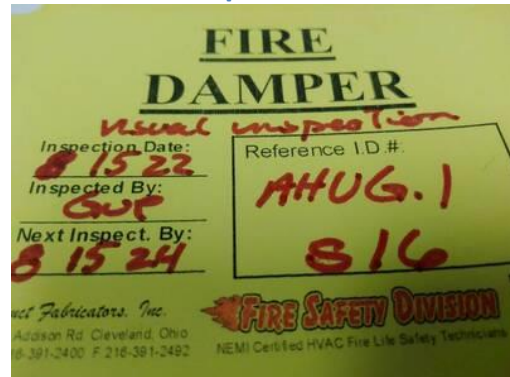 FIRE
DAMPER
visual inspection
Inspection Date:
8 15 22
Inspected By:
Gup
Next Inspect. By:
8 15 24
Reference I.D.#:
AHUG.1
S16
uct Fabricators, Inc.
Addison Rd. Cleveland, Ohio
6-391-2400 F 216-391-2492
FIRE SAFETY DIVISION
NEMI Certified HVAC Fire Life Safety Technicians